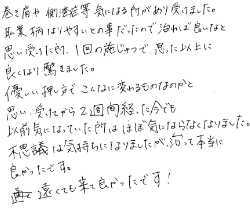 巻き肩や側湾症等気になる所があり受けました。
職業柄なりやすいとの事だったので治れば良いなと
思い受けた所、1回の施じゅつで思った以上に
良くなり驚きました。
優しい押し方でこんなに変わるものなのかと
思い、受けてから2週間経った今でも
以前気になっていた所はほぼ気にならなくなりました。
不思議な気持ちになりましたが、通って本当に
良かったです。
遠くても来て良かったです!